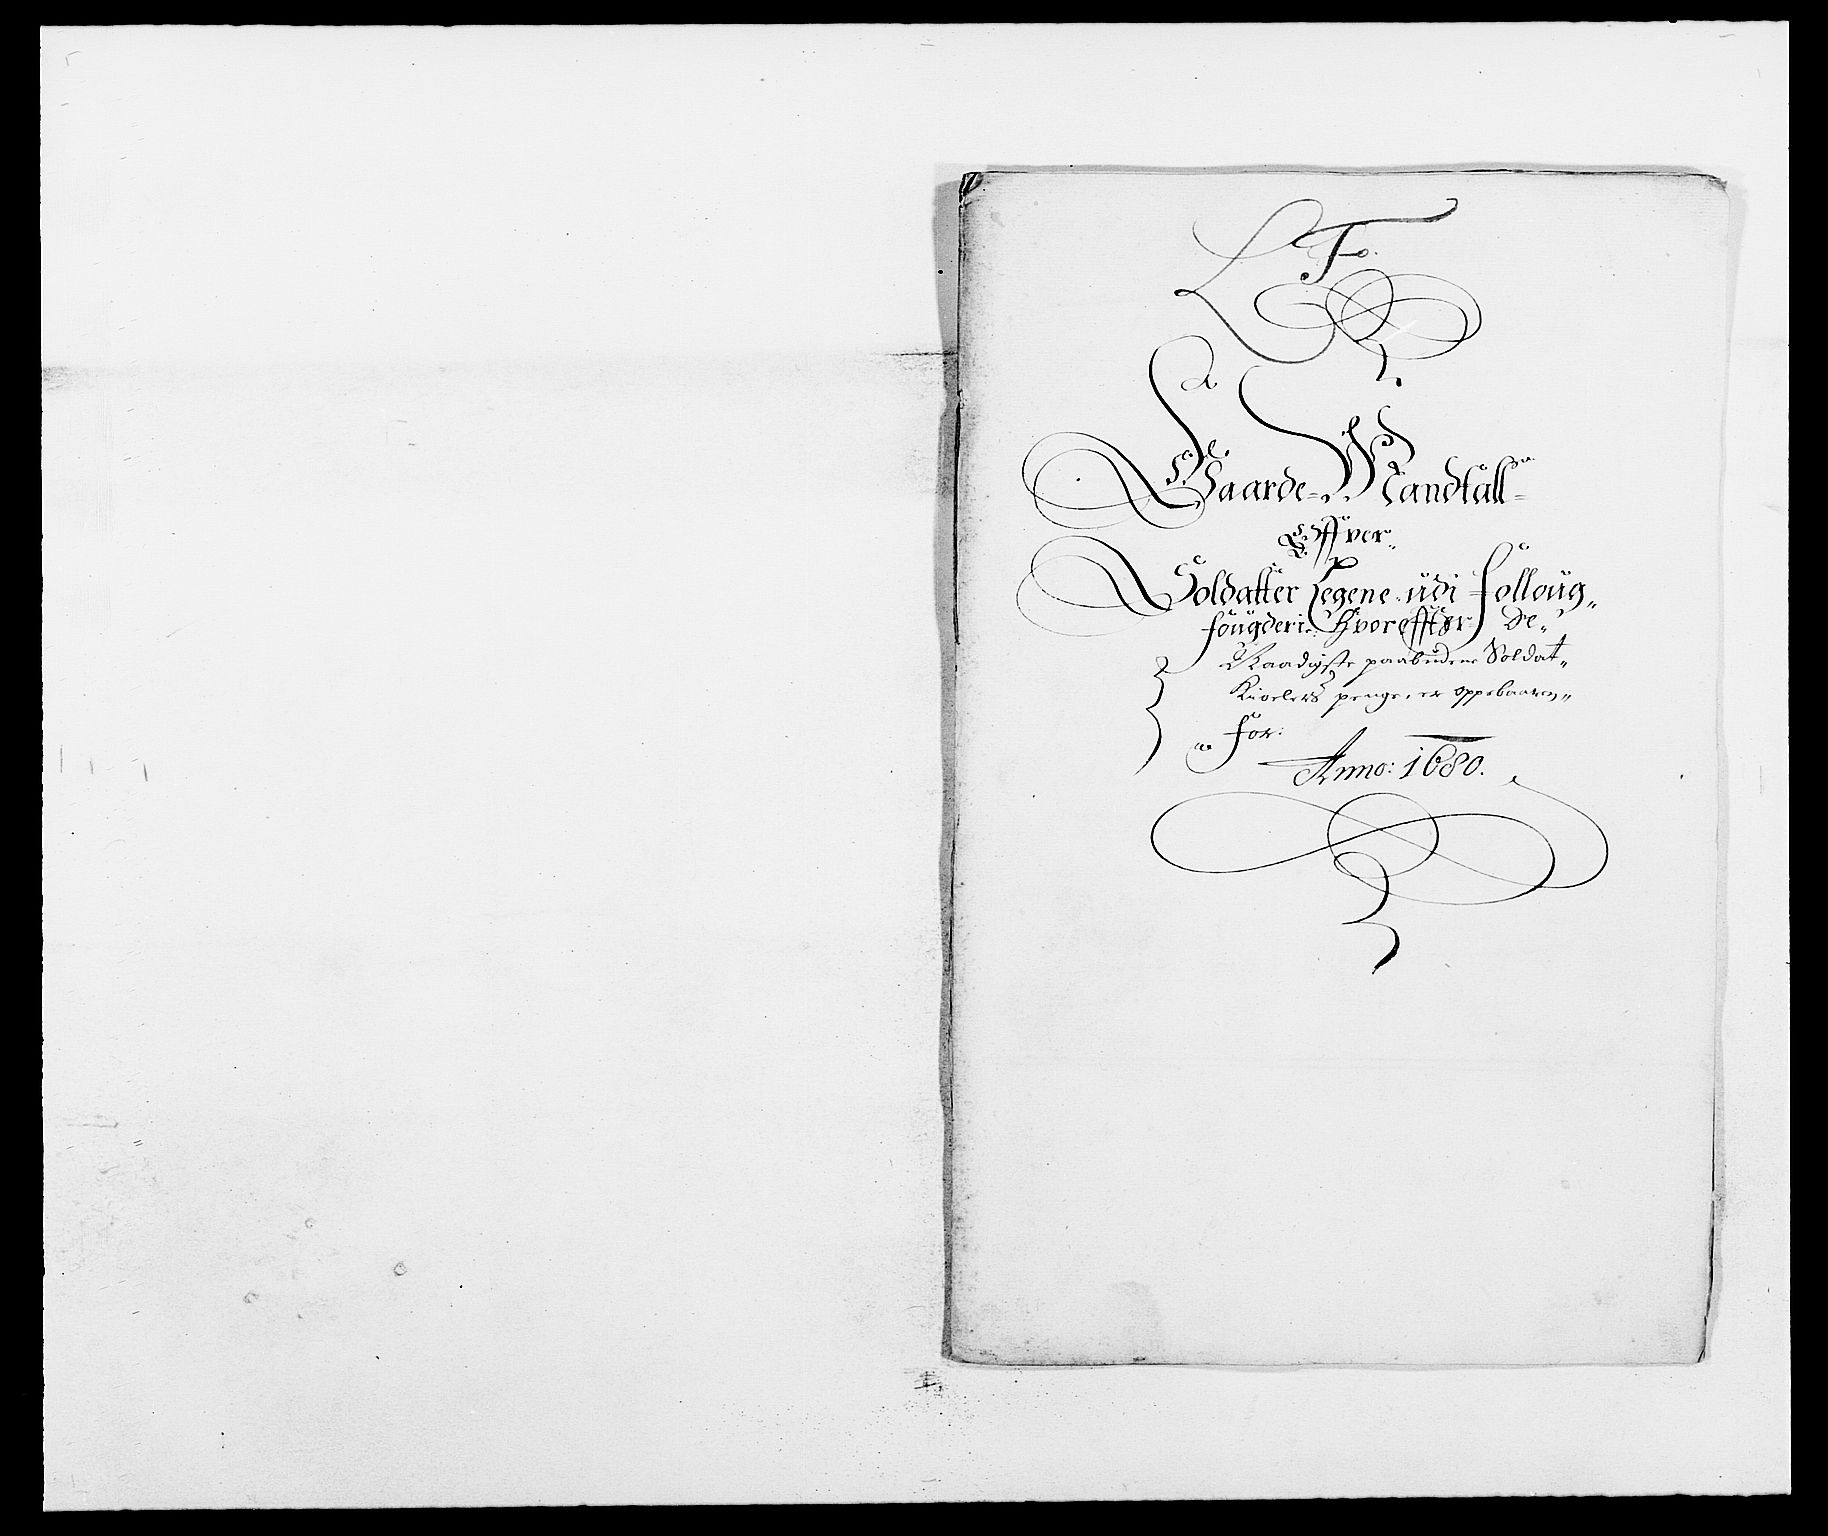 L F.
Gaarde= Mandtall=
Offver„
Soldatter Legene udi Folloug„
fougderi: Hvoreffter de„
Naadigste paabudene Soldat„
Kioelers penge, er oppebaaren„
For:
Anno: 1680.